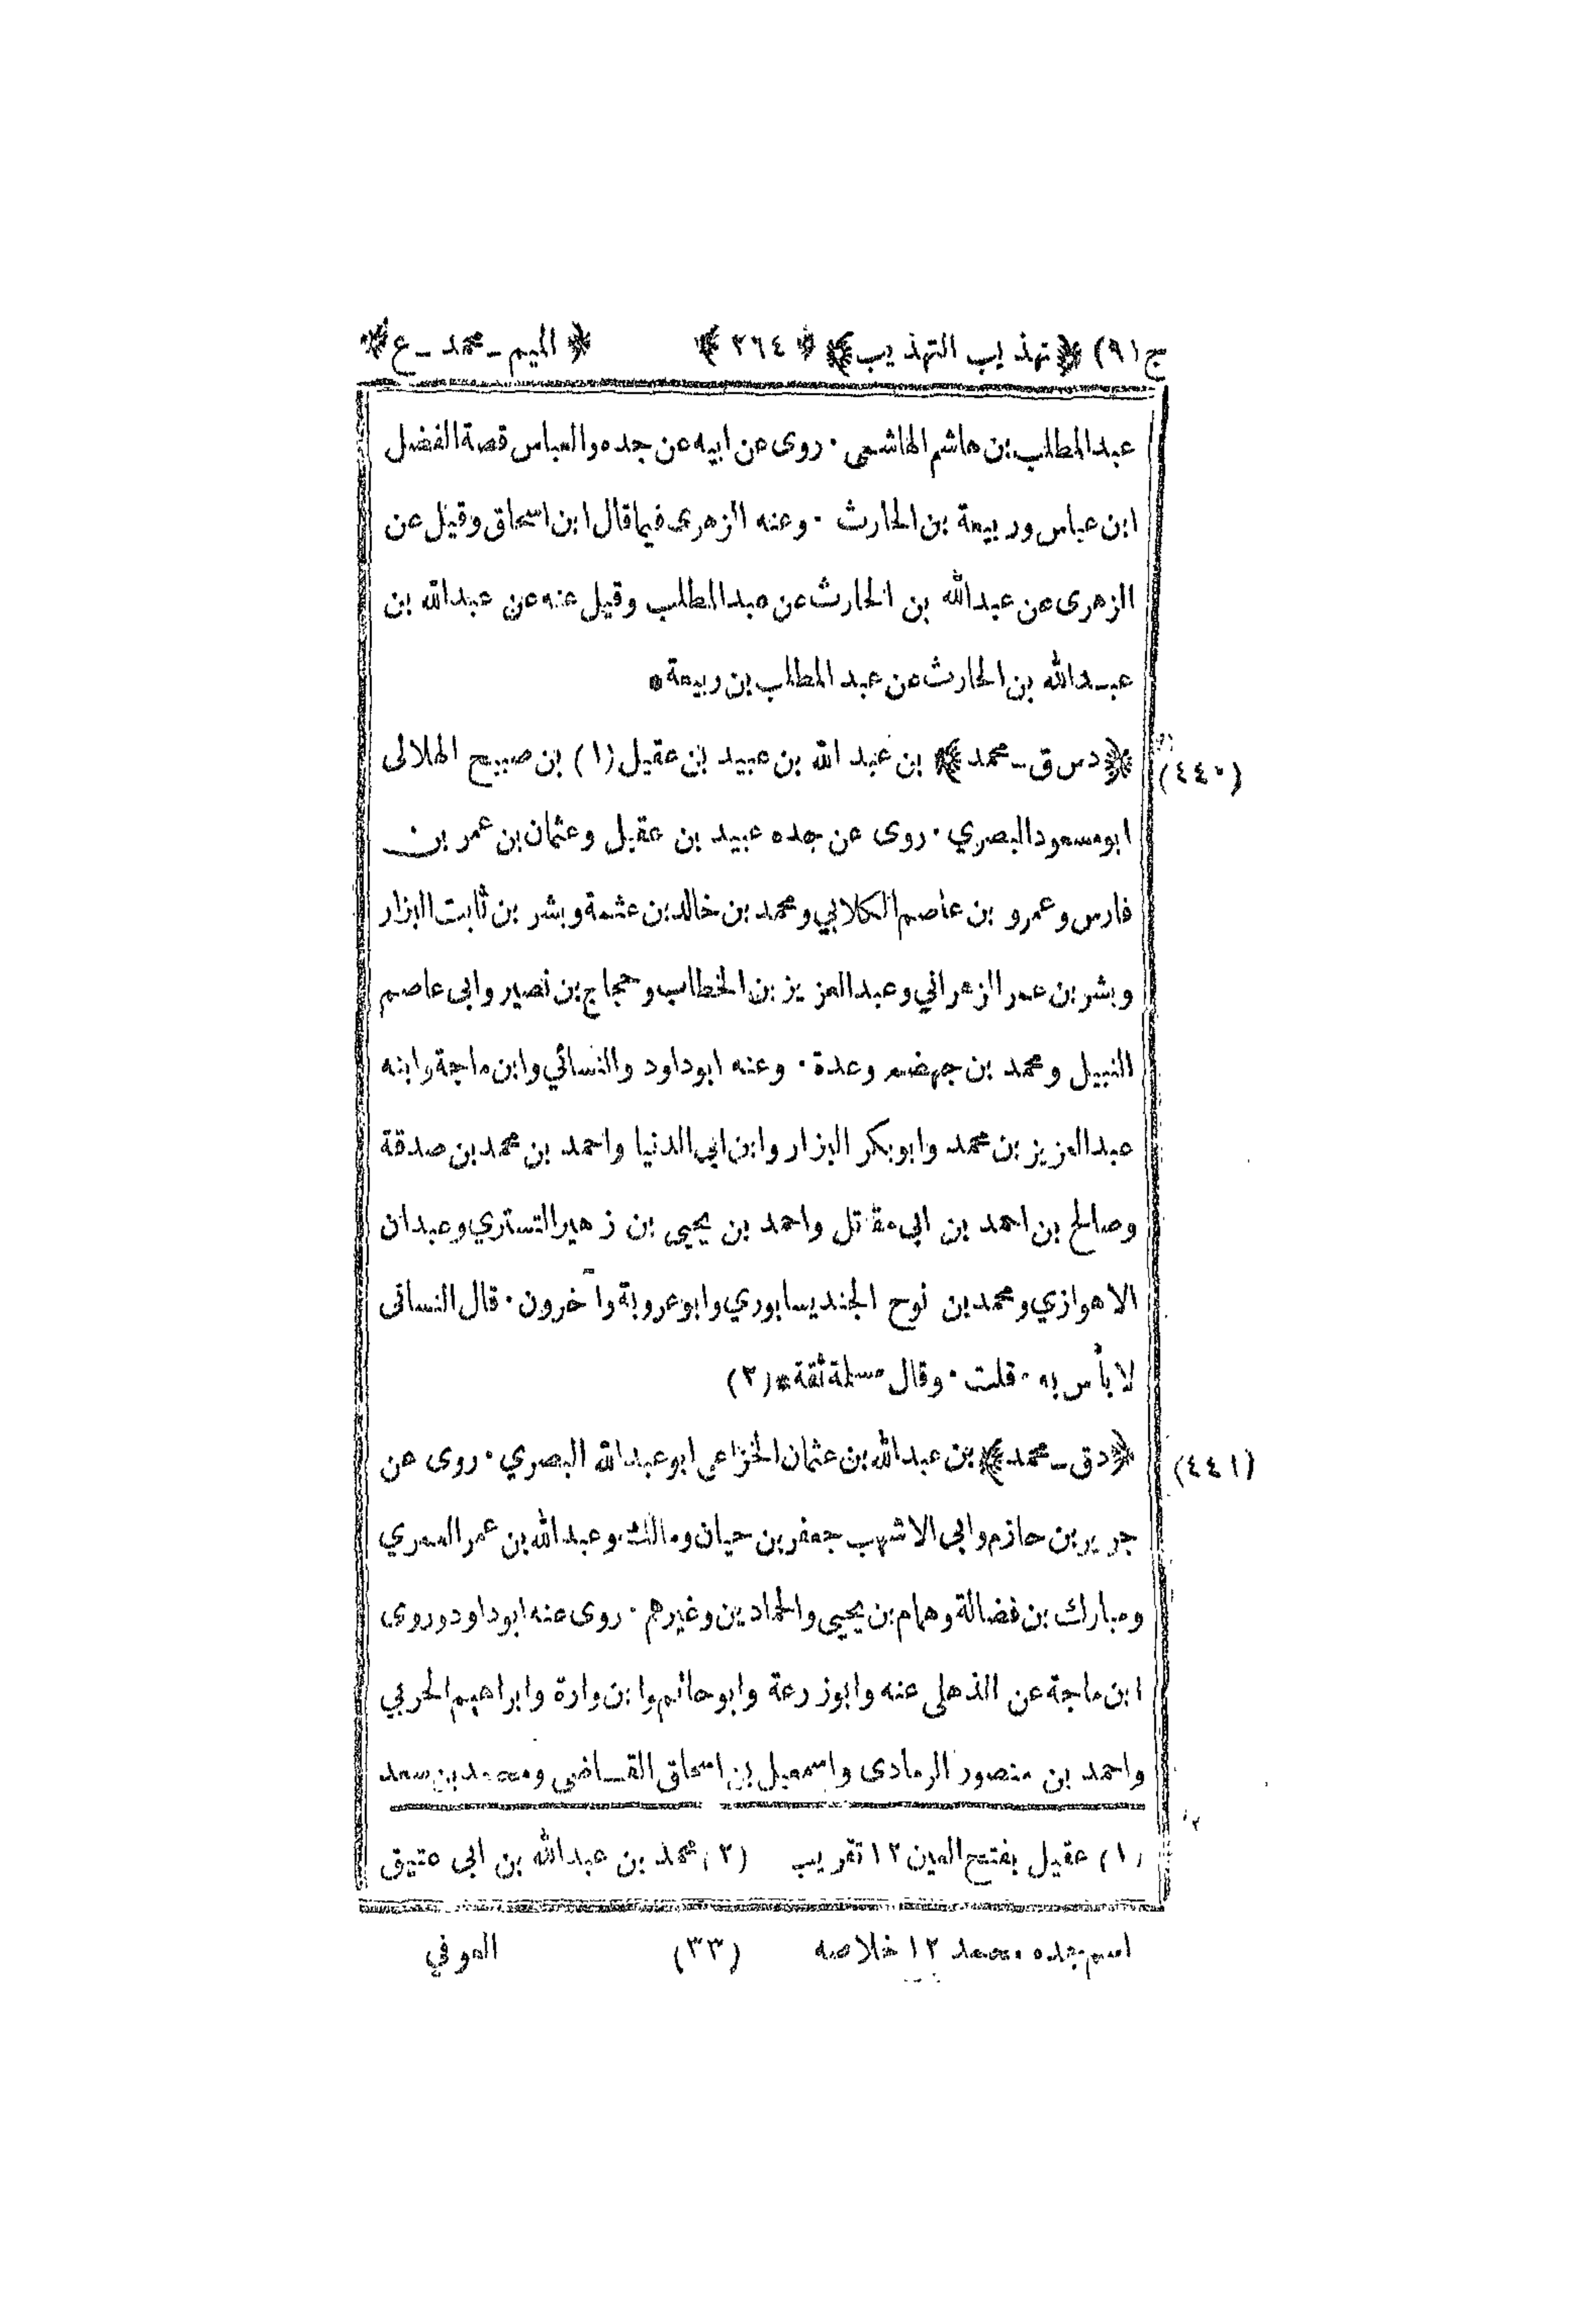 ج(٩) ﴿تهذيب التهذيب﴾ ﴿٢٦٤﴾ ﴿الميم ـ محمد ـ ع﴾
عبدالمطلب بن هاشم الهاشمى · روى عن ابيه عن جده والعباس قصة الفضل
ابن عباس وربيعة بن الحارث · وعنه الزهرى فيما قال ابن اسحاق وقيل عن
الزهرى عن عبدالله بن الحارث عن عبدالمطلب وقيل عنه عن عبدالله بن
عبدالله بن الحارث عن عبد المطلب بن ربيعة *
(٤٤٠) ﴿دس ق ـ محمد﴾ بن عبد الله بن عبيد بن عقيل (١) بن صبيح الهلالى
ابومسعود البصري · روى عن جده عبيد بن عقيل وعثمان بن عمر بن
فارس وعمرو بن عاصم الكلابي ومحمد بن خالد بن عثمة وبشر بن ثابت البزار
وبشر بن عمر الزهراني وعبدالعزيز بن الخطاب وحجاج بن نصير وابى عاصم
النبيل ومحمد بن جهضم وعدة · وعنه ابوداود والنسائي وابن ماجة وابنه
عبدالعزيز بن محمد وابوبكر البزار وابن ابي الدنيا واحمد بن محمد بن صدقة
وصالح بن احمد بن ابي مقاتل واحمد بن يحيى بن زهير التستري وعبدان
الاهوازي ومحمد بن نوح الجنديسابوري وابوعروبة وآخرون · قال النسائى
لا بأس به · قلت · وقال مسلمة ثقة * (٢)
(٤٤١) ﴿دق ـ محمد﴾ بن عبدالله بن عثمان الخزاعى ابوعبدالله البصري · روى عن
جرير بن حازم وابى الاشهب جعفر بن حيان ومالك وعبدالله بن عمر العمري
ومبارك بن فضالة وهمام بن يحيى والحمادين وغيرهم · روى عنه ابوداود وروى
ابن ماجة عن الذهلى عنه وابوزرعة وابوحاتم وابن وارة وابراهيم الحربي
واحمد بن منصور الرمادى واسمعيل بن اسحاق القـاضى ومحمد بن سعد
(١) عقيل بفتح العين ١٢ تقريب (٢) محمد بن عبدالله بن ابى عتيق
اسم جده محمد ١٢ خلاصه (٣٣) العوفي